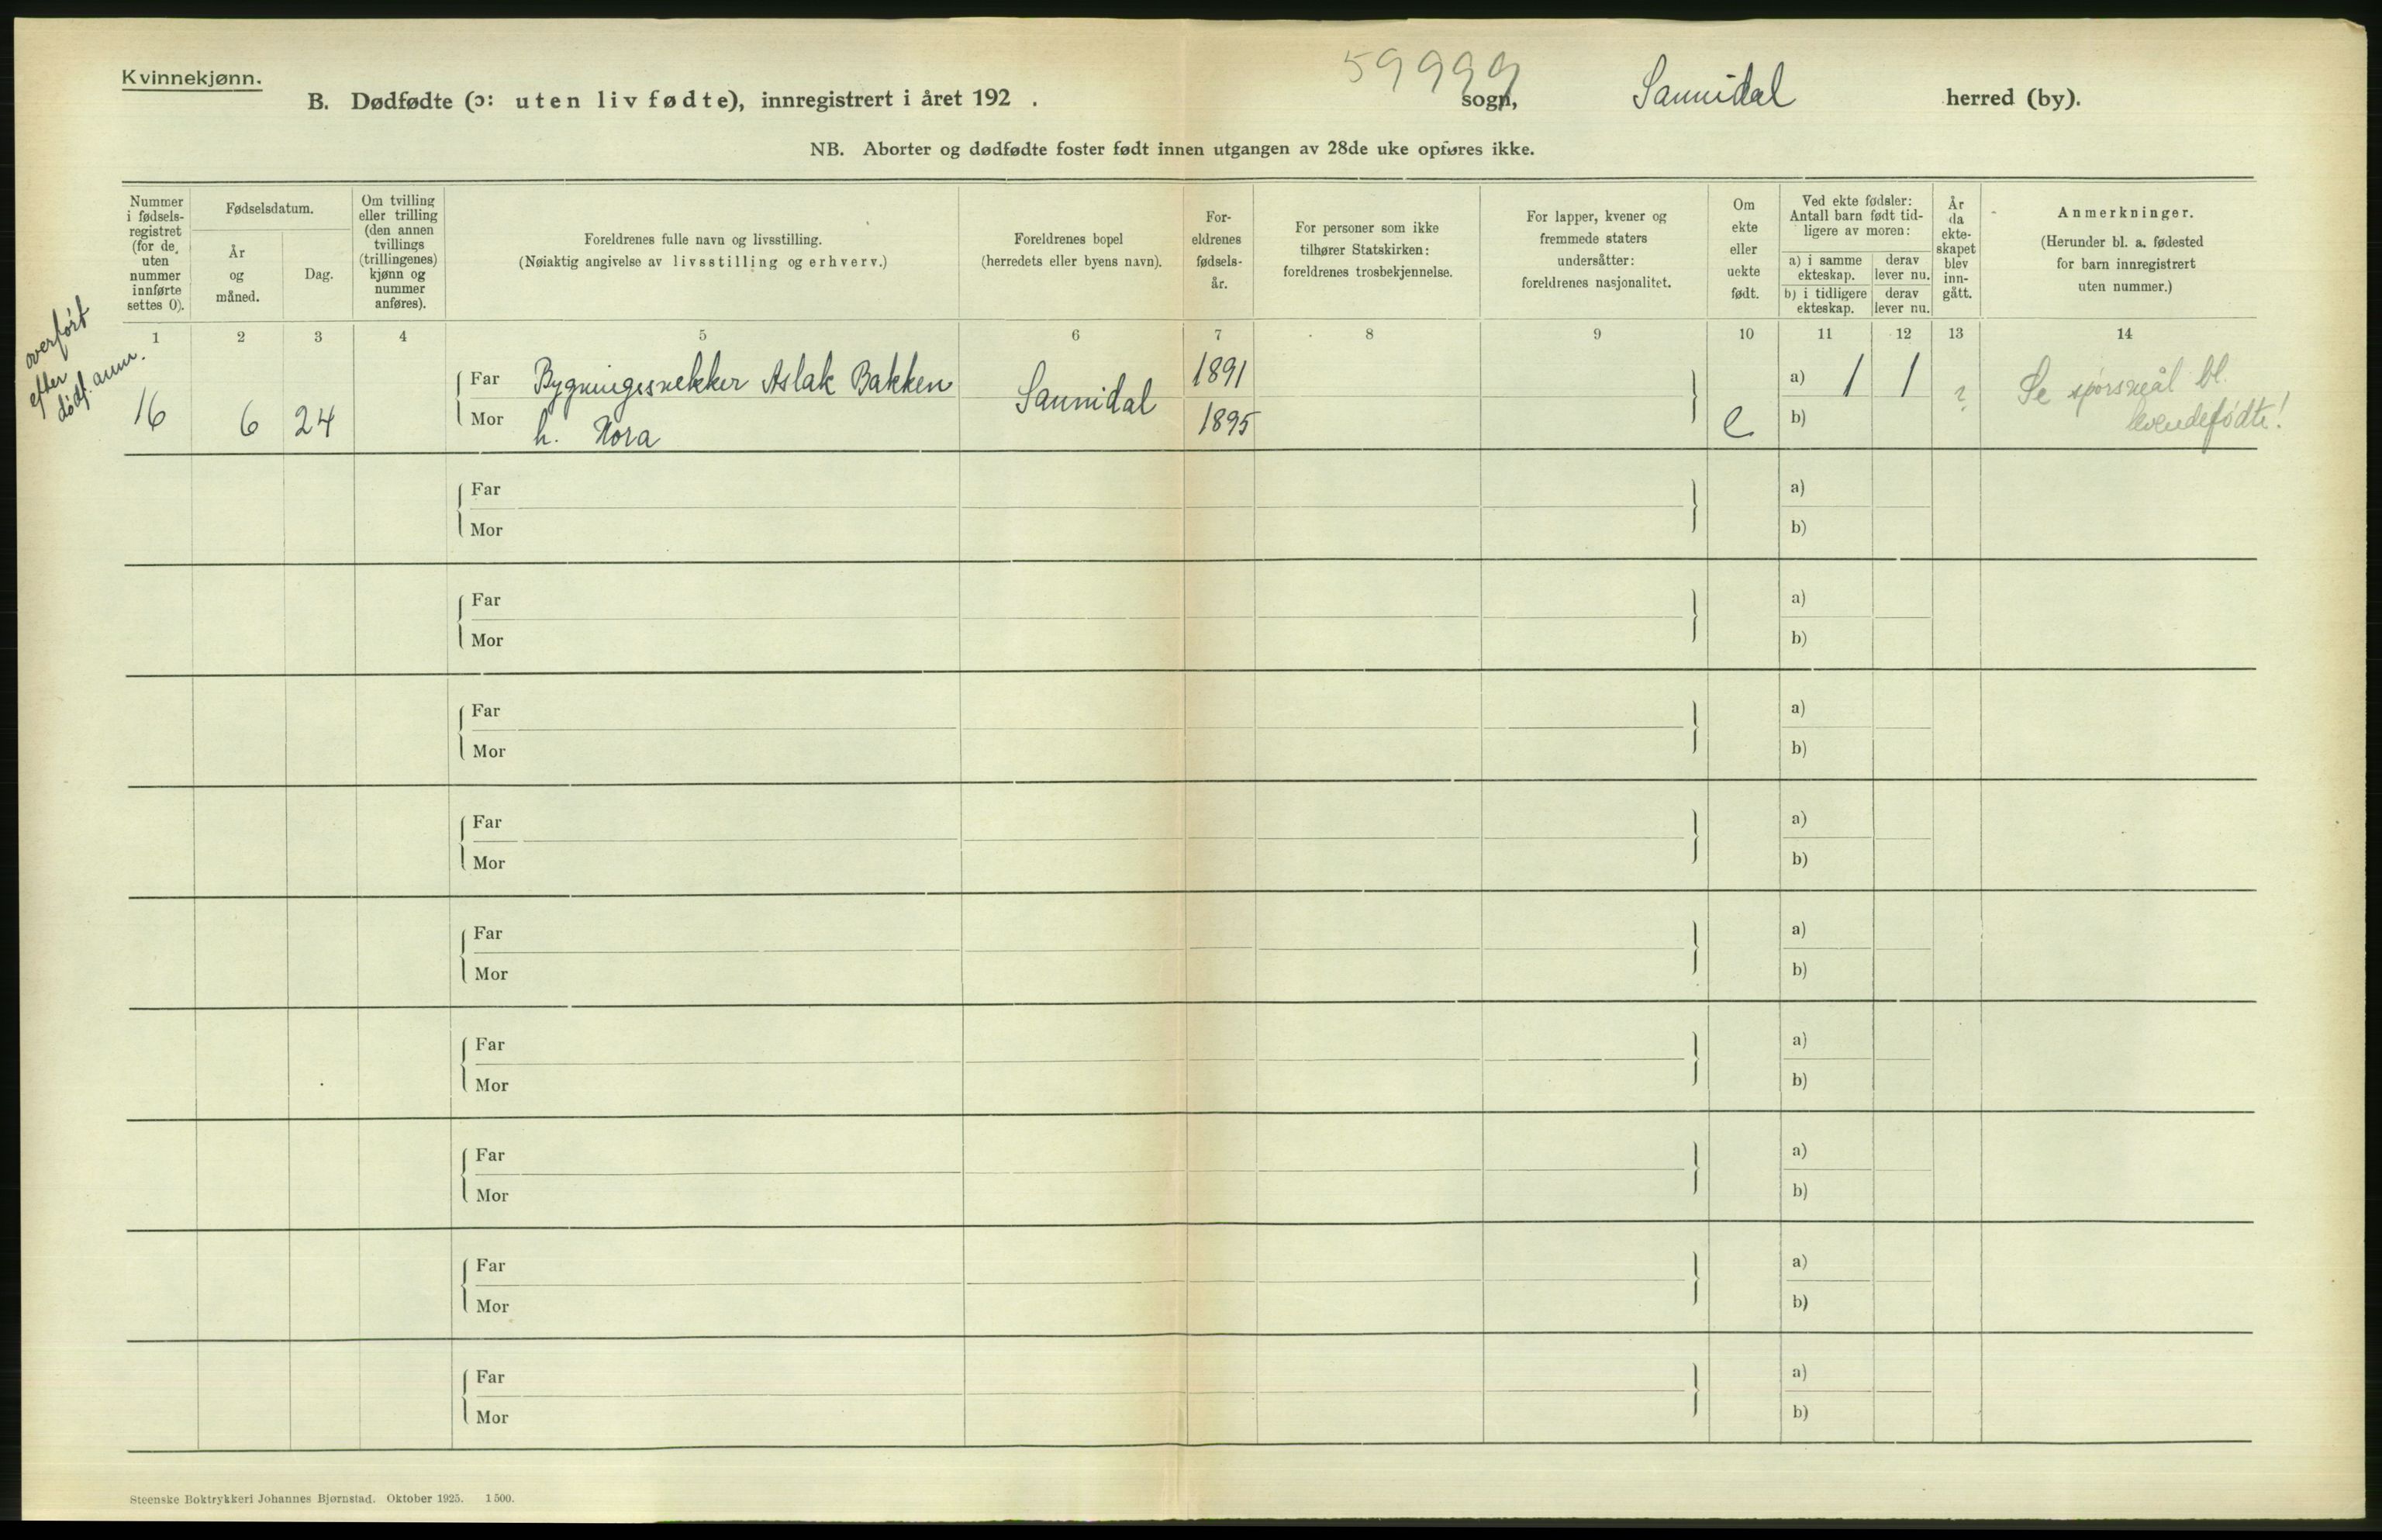 Kvinnekjønn.
59999
B. Dødfødte (ɔ: uten liv fødte), innregistrert i året 192 . sogn, Sannidal herred (by).
NB. Aborter og dødfødte foster født innen utgangen av 28de uke opføres ikke.
Nummer i fødsels- registret (for de uten nummer innførte settes 0).
Fødselsdatum.
År og måned.
Dag.
Om tvilling eller trilling (den annen tvillings (trillingenes) kjønn og nummer anføres).
Foreldrenes fulle navn og livsstilling.
(Nøiaktig angivelse av livsstilling og erhverv.)
Foreldrenes bopel
(herredets eller byens navn).
For- eldrenes fødsels- år.
For personer som ikke tilhører Statskirken: foreldrenes trosbekjennelse.
For lapper, kvener og fremmede staters undersåtter: foreldrenes nasjonalitet.
Om ekte eller uekte født.
Ved ekte fødsler: Antall barn født tid- ligere av moren:
a) i samme ekteskap.
derav lever nu.
b) i tidligere ekteskap.
derav lever nu.
År da ekte- skapet blev inn- gått.
Anmerkninger.
(Herunder bl. a. fødested for barn innregistrert uten nummer.)
1 2 3 4 5 6 7 8 9 10 11 12 13 14
overført
efter
dødf. anm.
16 6 24
Far Bygningssnekker Aslak Bakken Sannidal 1891 a) 1 1 ?
Mor h. Nora 1895 e b)
Se spørsmål bl.
levendefødte!
Far a)
Mor b)
Far a)
Mor b)
Far a)
Mor b)
Far a)
Mor b)
Far a)
Mor b)
Far a)
Mor b)
Far a)
Mor b)
Far a)
Mor b)
Far a)
Mor b)
Steenske Boktrykkeri Johannes Bjørnstad. Oktober 1925. 1500.